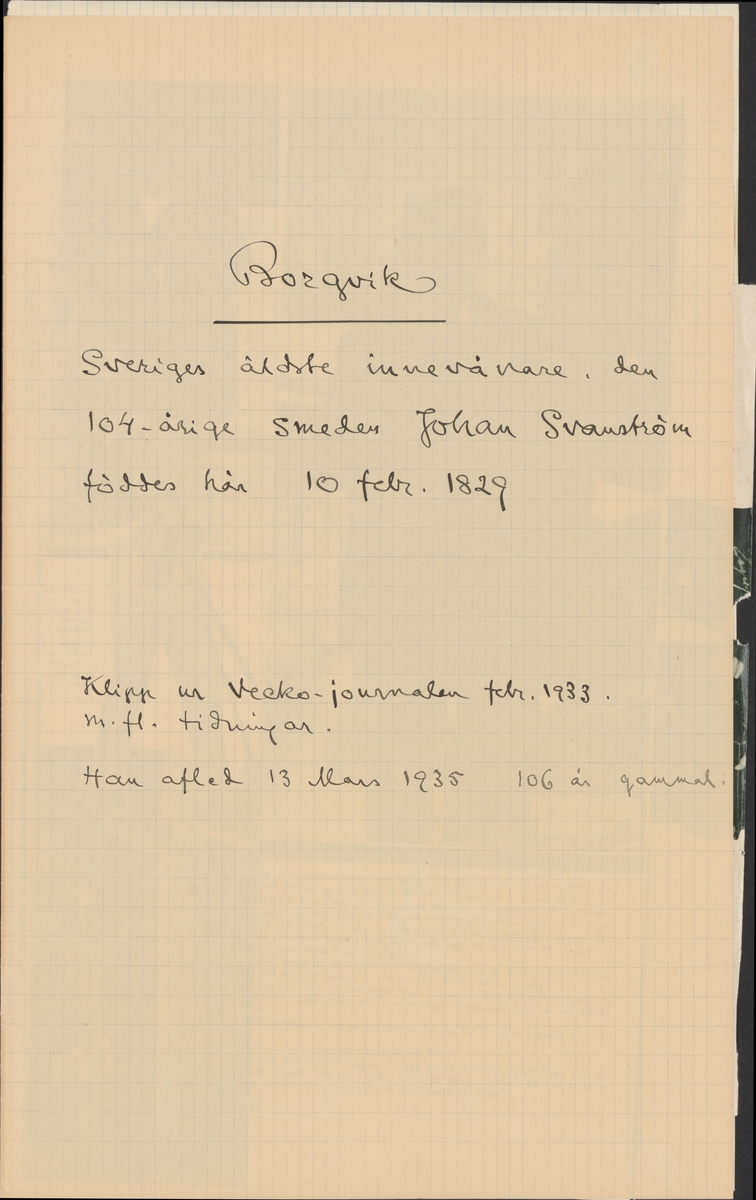 Borgvik
Sveriges äldste innevånare, den
104-årige smeden Johan Svanström
föddes här 10 febr. 1829
Klipp ur Vecko-journalen febr. 1933.
m. fl. tidningar.
Han afled 13 Mars 1935 106 år gammal.